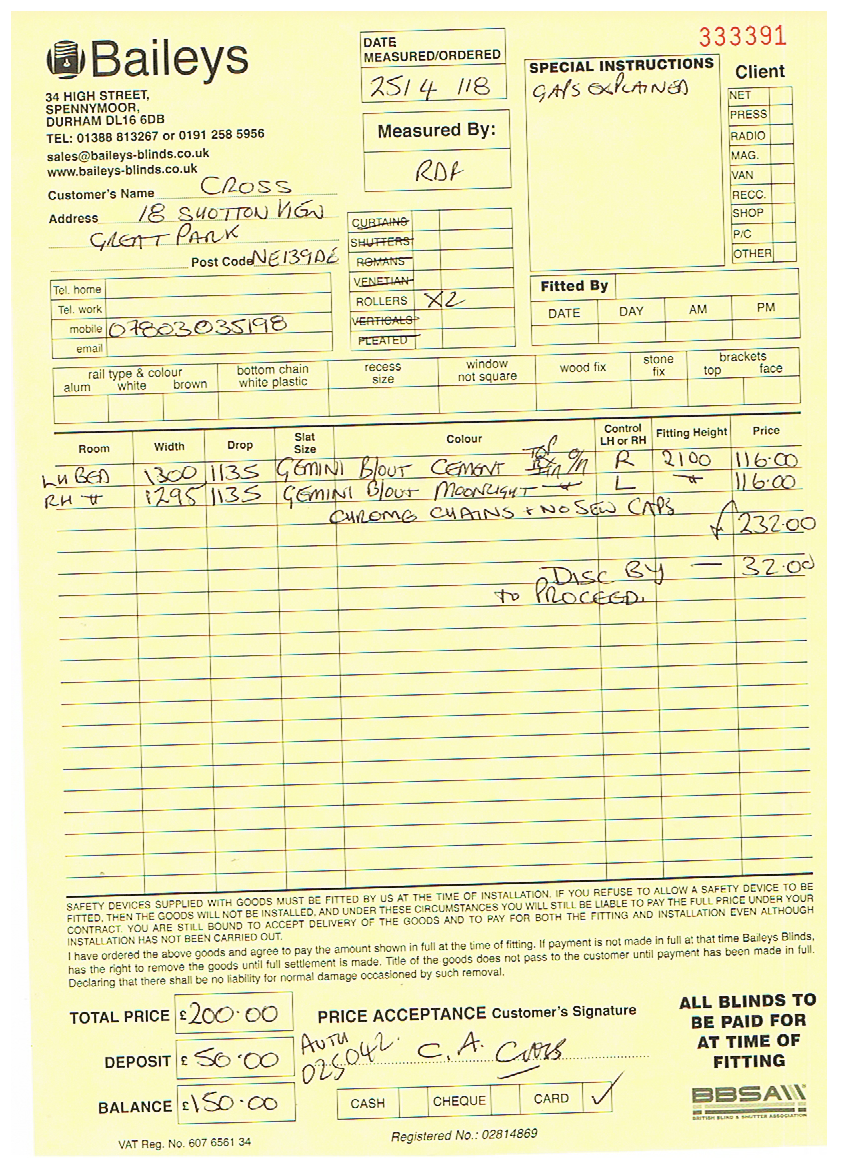 333391
Baileys
34 HIGH STREET,
SPENNYMOOR,
DURHAM DL16 6DB
TEL: 01388 813267 or 0191 258 5956
sales@baileys-blinds.co.uk
www.baileys-blinds.co.uk
Customer's Name CROSS
Address 18 SHOTTON VIEW
GREAT PARK
Post Code NE139DE
Tel. home
Tel. work
mobile 07803035198
email
DATE
MEASURED/ORDERED
25/4/18
Measured By:
RDF
CURTAINS
SHUTTERS
ROMANS
VENETIAN
ROLLERS X2
VERTICALS
PLEATED
SPECIAL INSTRUCTIONS
GAPS EXPLAINED
Client
NET
PRESS
RADIO
MAG.
VAN
RECC.
SHOP
P/C
OTHER
Fitted By
DATE DAY AM PM
rail type & colour
alum white brown
bottom chain
white plastic
recess
size
window
not square
wood fix
stone
fix
brackets
top face
Room Width Drop Slat Size Colour Control LH or RH Fitting Height Price
LH BED 1300 1135 GEMINI B/OUT CEMENT TOP FIX R 2100 116.00
RH " 1295 1135 GEMINI B/OUT MOONLIGHT " L " 116.00
CHROME CHAINS + NO SEW CAPS
£232.00
DISC BY — 32.00
TO PROCEED.
SAFETY DEVICES SUPPLIED WITH GOODS MUST BE FITTED BY US AT THE TIME OF INSTALLATION. IF YOU REFUSE TO ALLOW A SAFETY DEVICE TO BE
FITTED, THEN THE GOODS WILL NOT BE INSTALLED, AND UNDER THESE CIRCUMSTANCES YOU WILL STILL BE LIABLE TO PAY THE FULL PRICE UNDER YOUR
CONTRACT. YOU ARE STILL BOUND TO ACCEPT DELIVERY OF THE GOODS AND TO PAY FOR BOTH THE FITTING AND INSTALLATION EVEN ALTHOUGH
INSTALLATION HAS NOT BEEN CARRIED OUT.
I have ordered the above goods and agree to pay the amount shown in full at the time of fitting. If payment is not made in full at that time Baileys Blinds,
has the right to remove the goods until full settlement is made. Title of the goods does not pass to the customer until payment has been made in full.
Declaring that there shall be no liability for normal damage occasioned by such removal.
TOTAL PRICE £200.00
DEPOSIT £50.00
BALANCE £150.00
PRICE ACCEPTANCE Customer's Signature
AUTH
025042. C. A. Cross
CASH CHEQUE CARD ✓
ALL BLINDS TO
BE PAID FOR
AT TIME OF
FITTING
BBSA
BRITISH BLIND & SHUTTER ASSOCIATION
VAT Reg. No. 607 6561 34
Registered No.: 02814869